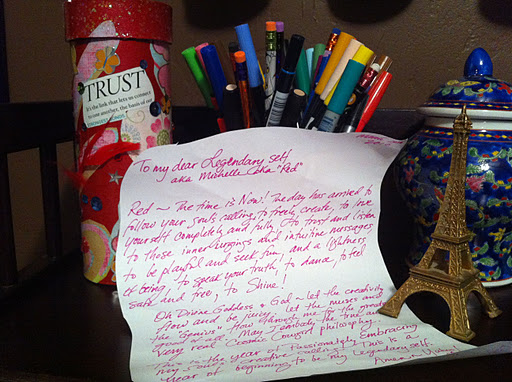 TRUST
It's the link that lets us connect
to one another, the basis of our
To my dear Legendary self
aka Michelle (aka "Red"
Red ~ The time is Now! The day has arrived to
follow your souls calling, to freely create, to love
yourself completely and fully, to trust and listen
to those inner urgings and intuitive messages,
to be playful and seek fun, and a lightness
of being, to speak your truth, to dance, to feel
safe and free, to Shine!
Oh Divine Goddess & God ~ let the creativity
flow and be juicy. let the muses and
the Genius flow through me for the greater
good of all. May I embody the true and
very real Creative Cowgirl philosophy.
This is the year of Passionately Embracing
my Soul's Creative calling. This is a
year of beginning to be my Legendary self.